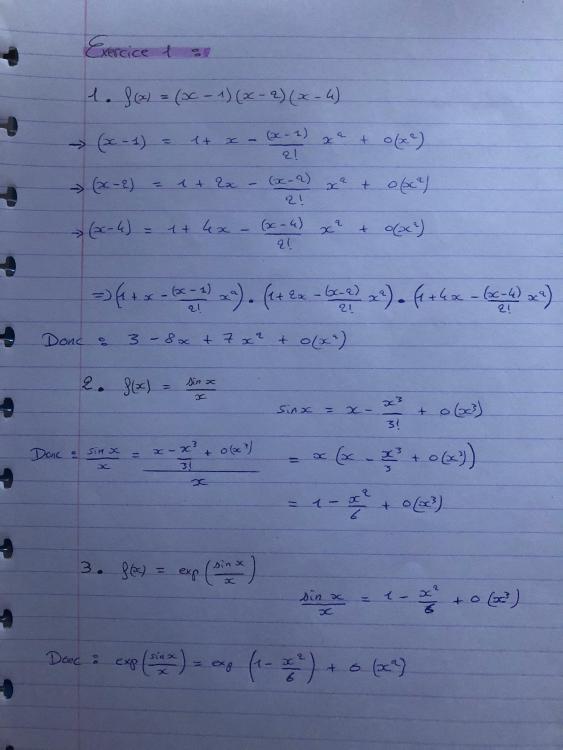 Exercice 1 :
1. f(x) = (x-1)(x-2)(x-4)
→ (x-1) = 1 + x - (x-1)/2! x² + o(x²)
→ (x-2) = 1 + 2x - (x-2)/2! x² + o(x²)
→ (x-4) = 1 + 4x - (x-4)/2! x² + o(x²)
⇒ (1 + x - (x-1)/2! x²) . (1 + 2x - (x-2)/2! x²) . (1 + 4x - (x-4)/2! x²)
Donc : 3 - 8x + 7x² + o(x²)
2. f(x) = sin x/x
sin x = x - x³/3! + o(x³)
Donc : sin x/x = (x - x³/3! + o(x³))/x = x(x - x³/3 + o(x³))
= 1 - x²/6 + o(x³)
3. f(x) = exp(sin x/x)
sin x/x = 1 - x²/6 + o(x³)
Donc : exp(sin x/x) = exp(1 - x²/6) + o(x²)